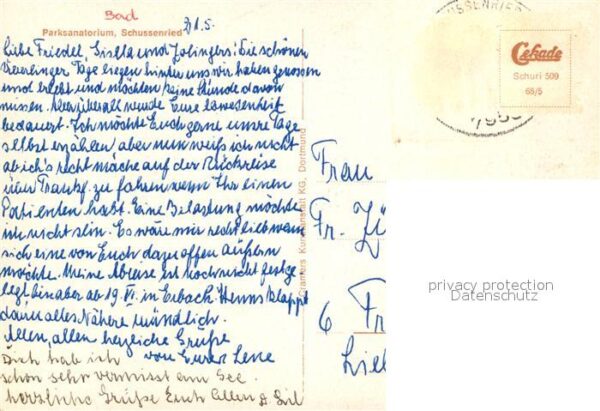 Bad
Parksanatorium, Schussenried
Liebe Friedel, Gisella und Zolingers! Die schönen
Tage liegen hinter uns wir haben genossen
und erlebt und möchten keine Stunde davon
missen. Aber überall wurde Eure Abwesenheit
bedauert. Ich möchte Euch gerne unsre Tage
selbst erzählen aber nun weiß ich nicht
ob ich's recht mache auf der Rückreise
über Frankf. zu fahren wenn Ihr einen
Patienten habt. Eine Belastung möchte
ich nicht sein. Es wäre mir recht lieb wenn
sich eine von Euch dazu offen äußern
möchte. Meine Abreise ist noch nicht festge
legt bin aber ab 19. VI. in Erbach. Wenns klappt
dann alles Nähere mündlich.
Allen, allen herzliche Grüße
von Eurer Lene
Dich hab ich
schon sehr vermisst am See.
herzliche Grüße Euch allen
Cramers Kunstanstalt KG, Dortmund
SSENRIED
Cekade
Schuri 509
65/5
Frau
Fr.
6 Fr
privacy protection
Datenschutz